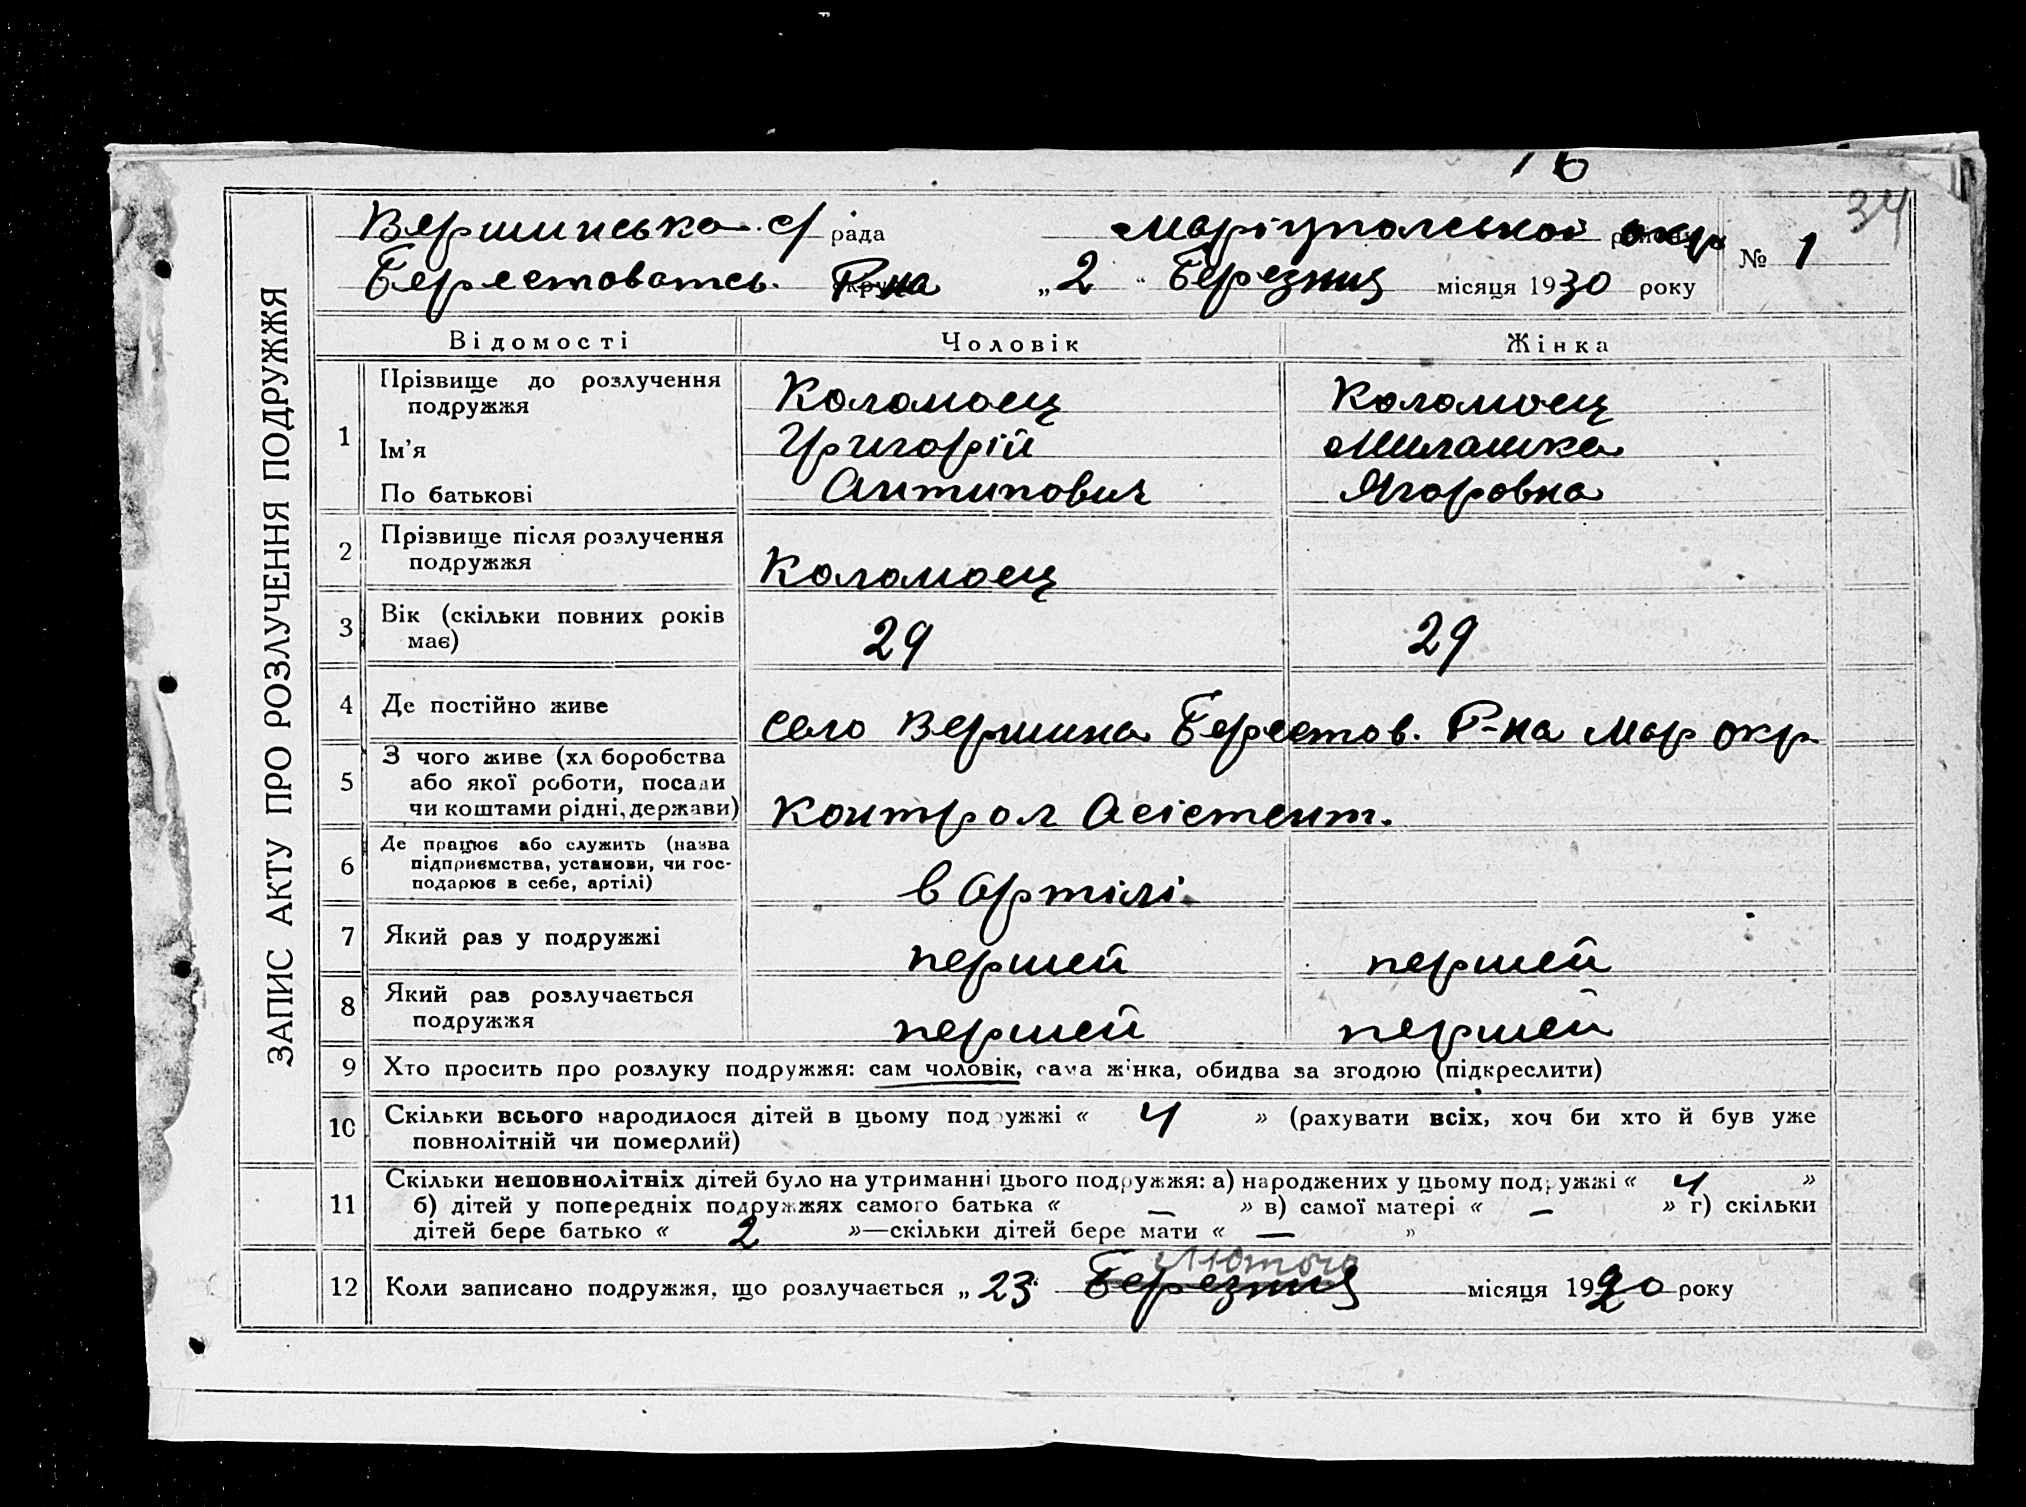 16
34
Вершинська с/рада Маріупольської окр № 1
Берестоватсь. Р-на „2“ Березния місяця 1930 року
ЗАПИС АКТУ ПРО РОЗЛУЧЕННЯ ПОДРУЖЖЯ
Відомості Чоловік Жінка
1 Прізвище до розлучення Коломоец Коломоец
подружжя
Ім'я Григорій Милашка
По батькові Антипович Ягоровна
2 Прізвище після розлучення
подружжя Коломоец
3 Вік (скільки повних років 29 29
має)
4 Де постійно живе село Вершина Берестов. Р-на Мар окр.
5 З чого живе (хл боробства
або якої роботи, посади
чи коштами рідні, держави) Контрол Асістент.
6 Де працює або служить (назва
підприємства, установи, чи гос-
подарює в себе, артілі) в Артілі.
7 Який раз у подружжі першей першей
8 Який раз розлучається
подружжя першей першей
9 Хто просить про розлуку подружжя: сам чоловік, сама жінка, обидва за згодою (підкреслити)
10 Скільки всього народилося дітей в цьому подружжі « 4 » (рахувати всіх, хоч би хто й був уже
повнолітній чи померлий)
11 Скільки неповнолітніх дітей було на утриманні цього подружжя: а) народжених у цьому подружжі « 4 »
б) дітей у попередніх подружжях самого батька « — » в) самої матері « — » г) скільки
дітей бере батько « 2 »—скільки дітей бере мати « — »
Лютого
12 Коли записано подружжя, що розлучається „23“ Березния місяця 1920 року